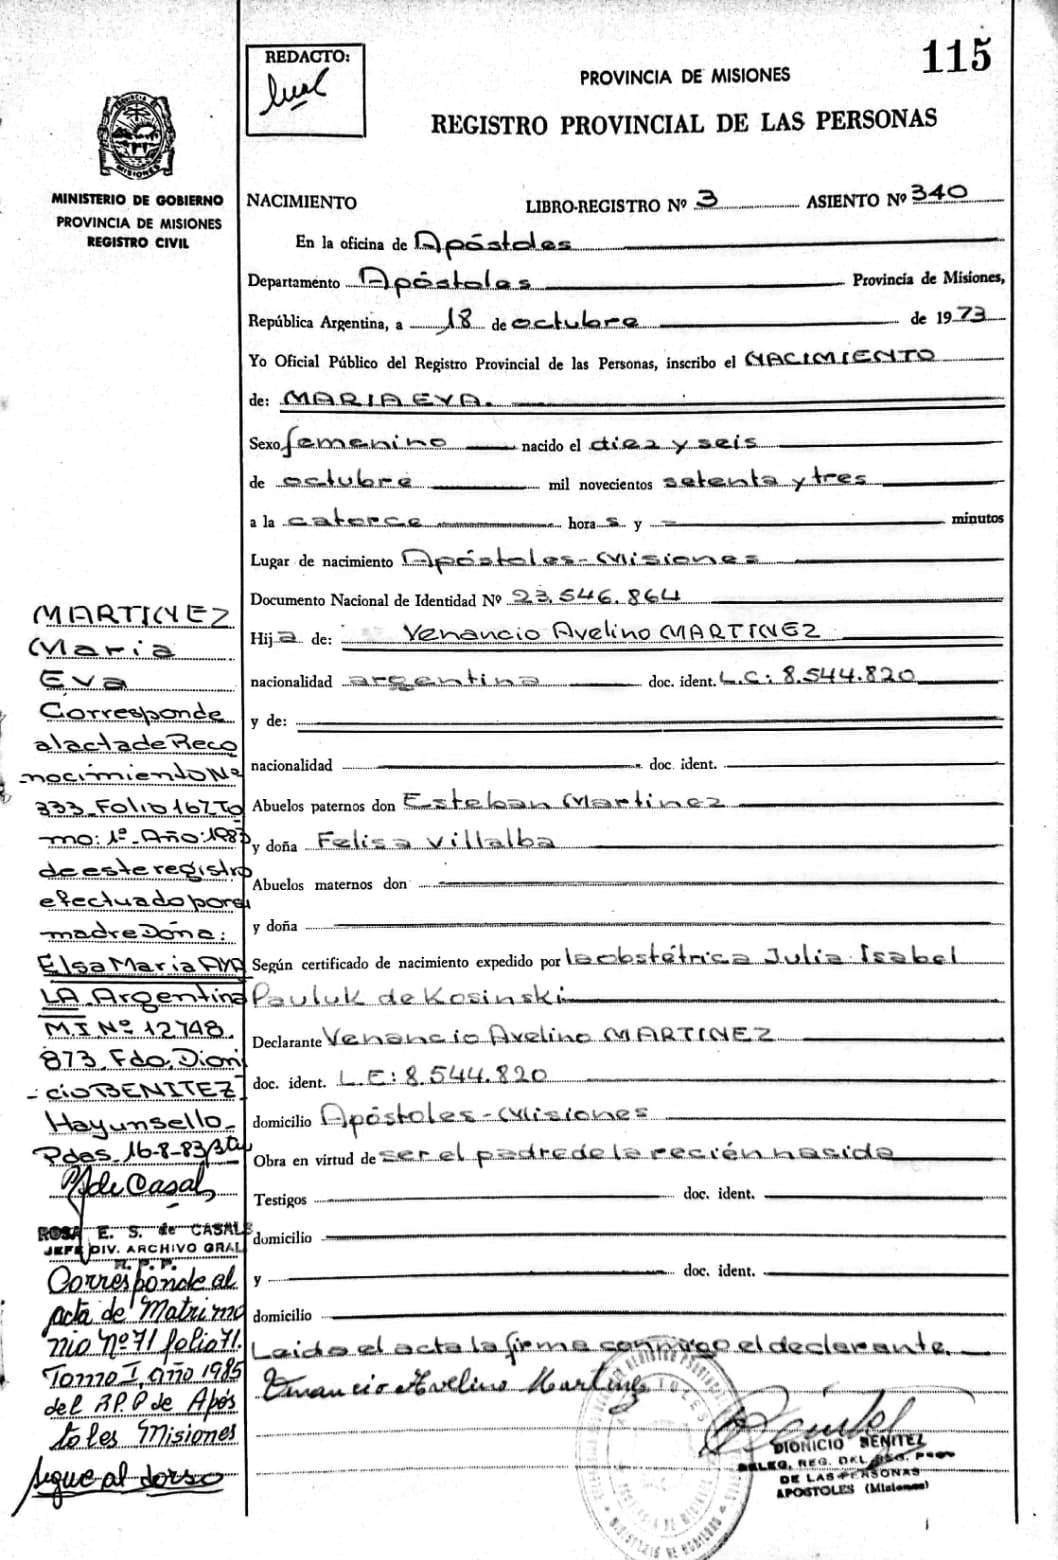 115
REDACTO:
PROVINCIA DE MISIONES
REGISTRO PROVINCIAL DE LAS PERSONAS
MINISTERIO DE GOBIERNO
PROVINCIA DE MISIONES
REGISTRO CIVIL
NACIMIENTO LIBRO-REGISTRO Nº 3 ASIENTO Nº 340
En la oficina de Apóstoles
Departamento Apóstoles Provincia de Misiones,
República Argentina, a 18 de octubre de 1973
Yo Oficial Público del Registro Provincial de las Personas, inscribo el NACIMIENTO
de: MARIA EVA.
Sexo femenino nacido el diez y seis
de octubre mil novecientos setenta y tres
a la catorce hora s y - minutos
Lugar de nacimiento Apóstoles-Misiones
Documento Nacional de Identidad Nº 23.546.864
Hij a de: Venancio Avelino MARTINEZ
nacionalidad argentina doc. ident. L.E: 8.544.820
y de:
nacionalidad doc. ident.
Abuelos paternos don Esteban Martinez
y doña Felisa Villalba
Abuelos maternos don
y doña
Según certificado de nacimiento expedido por la obstétrica Julia Isabel
Pauluk de Kosinski
Declarante Venancio Avelino MARTINEZ
doc. ident. L.E: 8.544.820
domicilio Apóstoles-Misiones
Obra en virtud de ser el padre de la recién nacida
Testigos doc. ident.
domicilio
y doc. ident.
domicilio
Leida el acta la firma conmigo el declarante.
Venancio Avelino Martinez
DIONICIO BENITEZ
DELEG. REG. DEL REG. PROV.
DE LAS PERSONAS
APOSTOLES (Misiones)
MARTINEZ
Maria
Eva
Corresponde
al acta de Reco
-nocimiento Nº
333 Folio 167 To
mo: 1º-Año:1983
de este registro
efectuado por su
madre Doña:
Elsa Maria AYA
LA Argentina
M.I Nº 12748.
873. Fdo. Dioni
-cio BENITEZ
Hay un sello_
Pdas. 16-8-83
R de Casal
ROSA E. S. de CASALS
JEFE DIV. ARCHIVO GRAL
R. P. P.
Corresponde al
acta de Matrimo
nio Nº 71 folio 71.
Tomo I, año 1985
del R.P.P de Após
toles Misiones
sigue al dorso